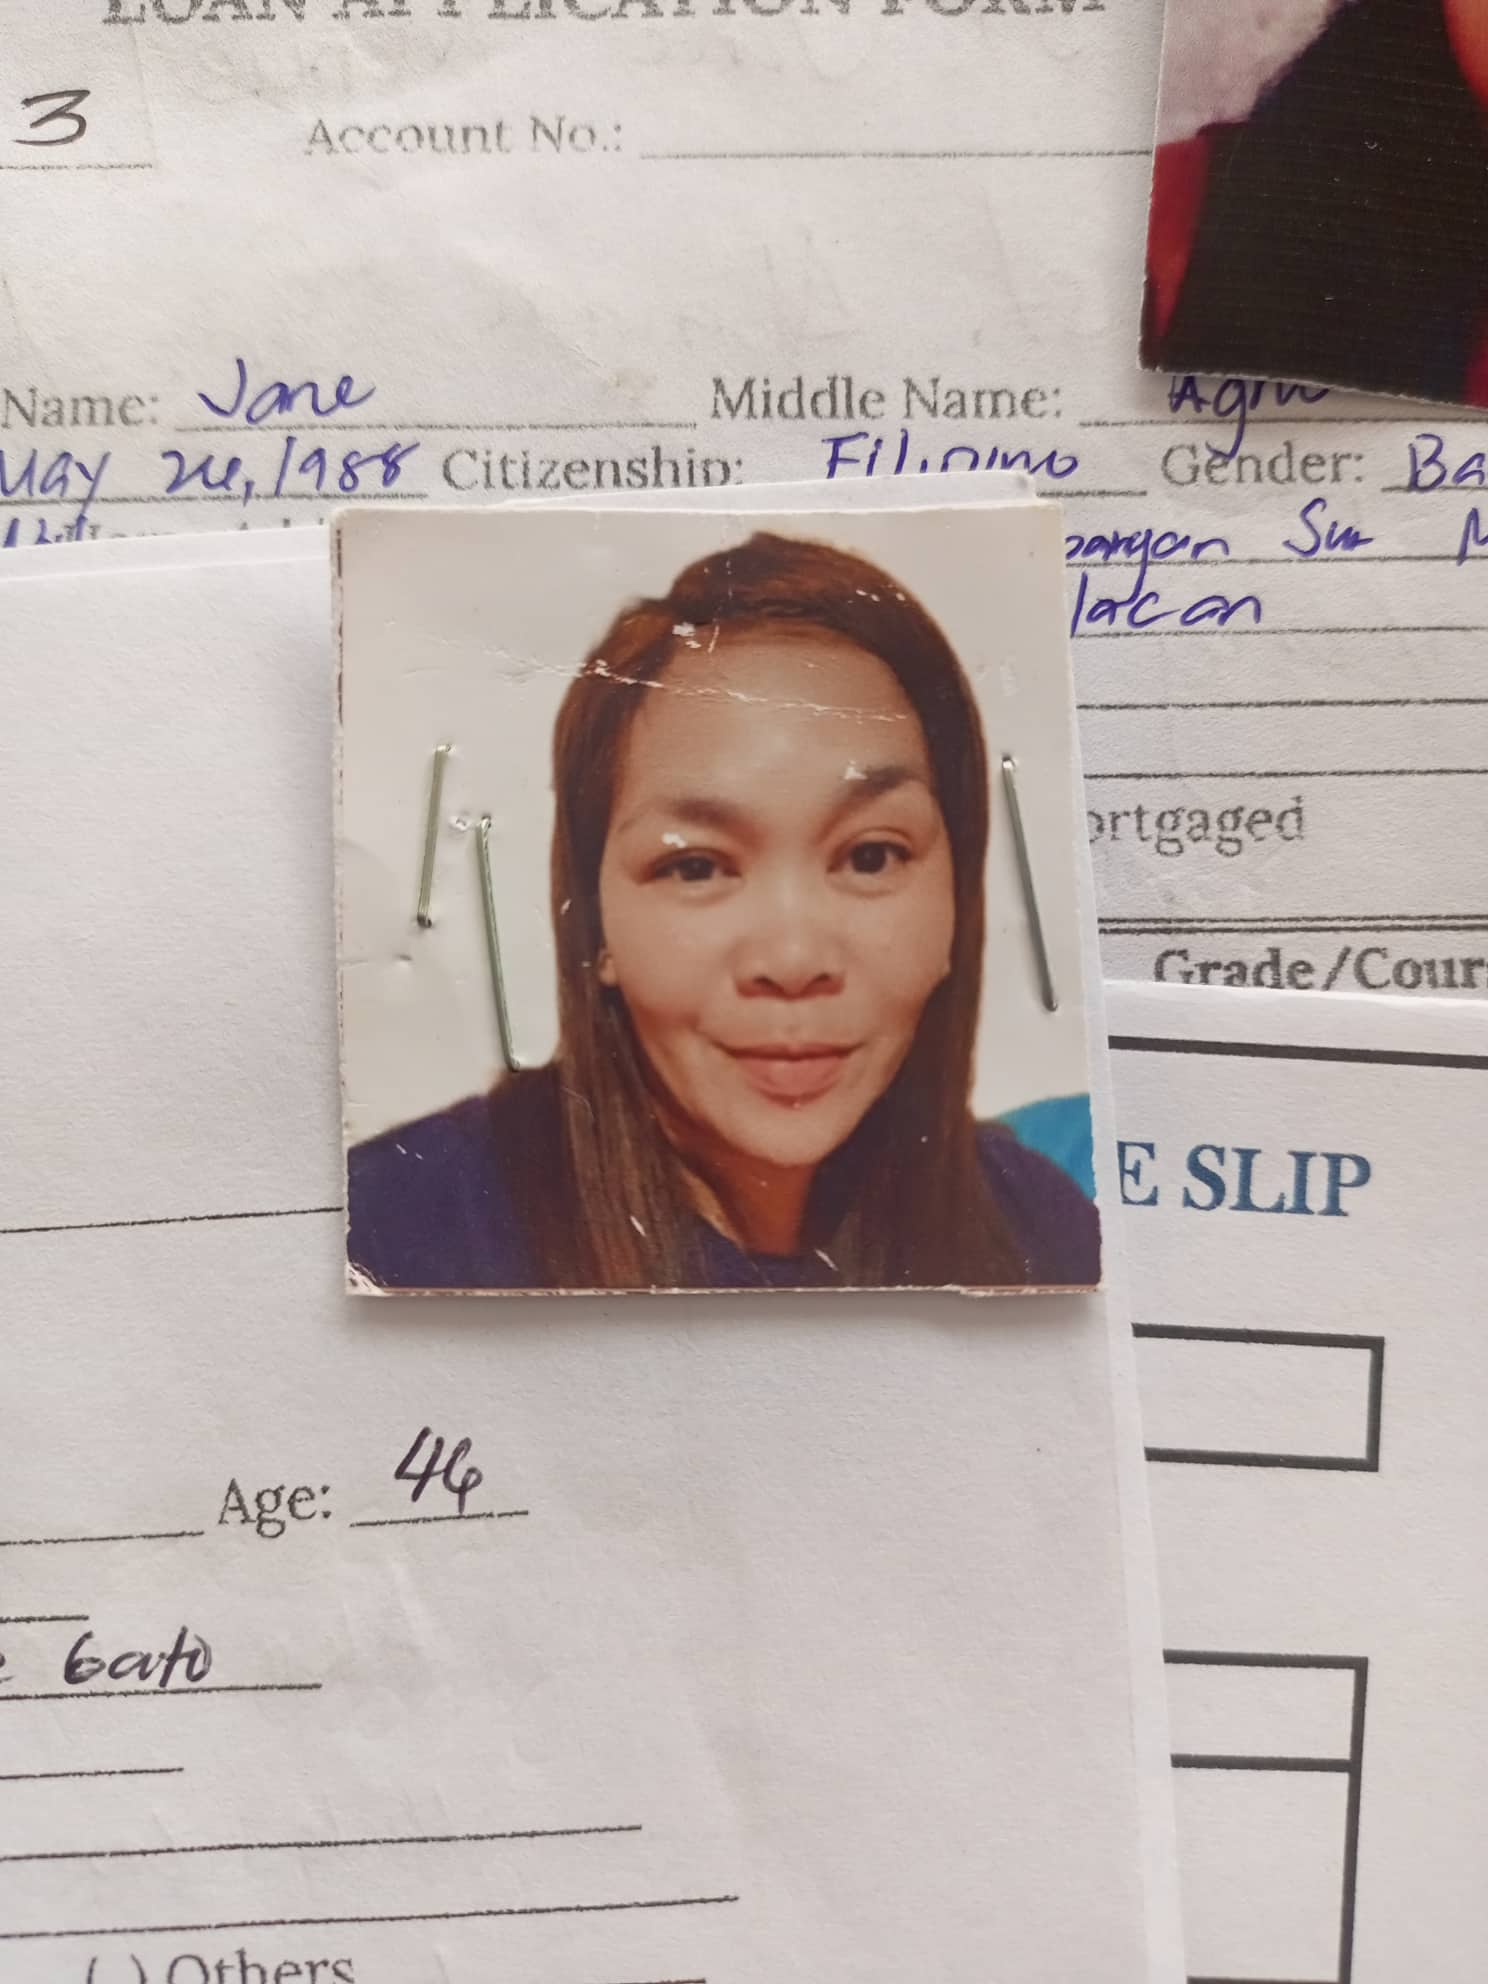 LOAN APPLICATION FORM
3 Account No.:
Name: Jane Middle Name:
May 24, 1988 Citizenship: Filipino Gender: Ba
bayan Sur
lacan
ortgaged
Grade/Cour
E SLIP
Age: 46
e Gato
( ) Others